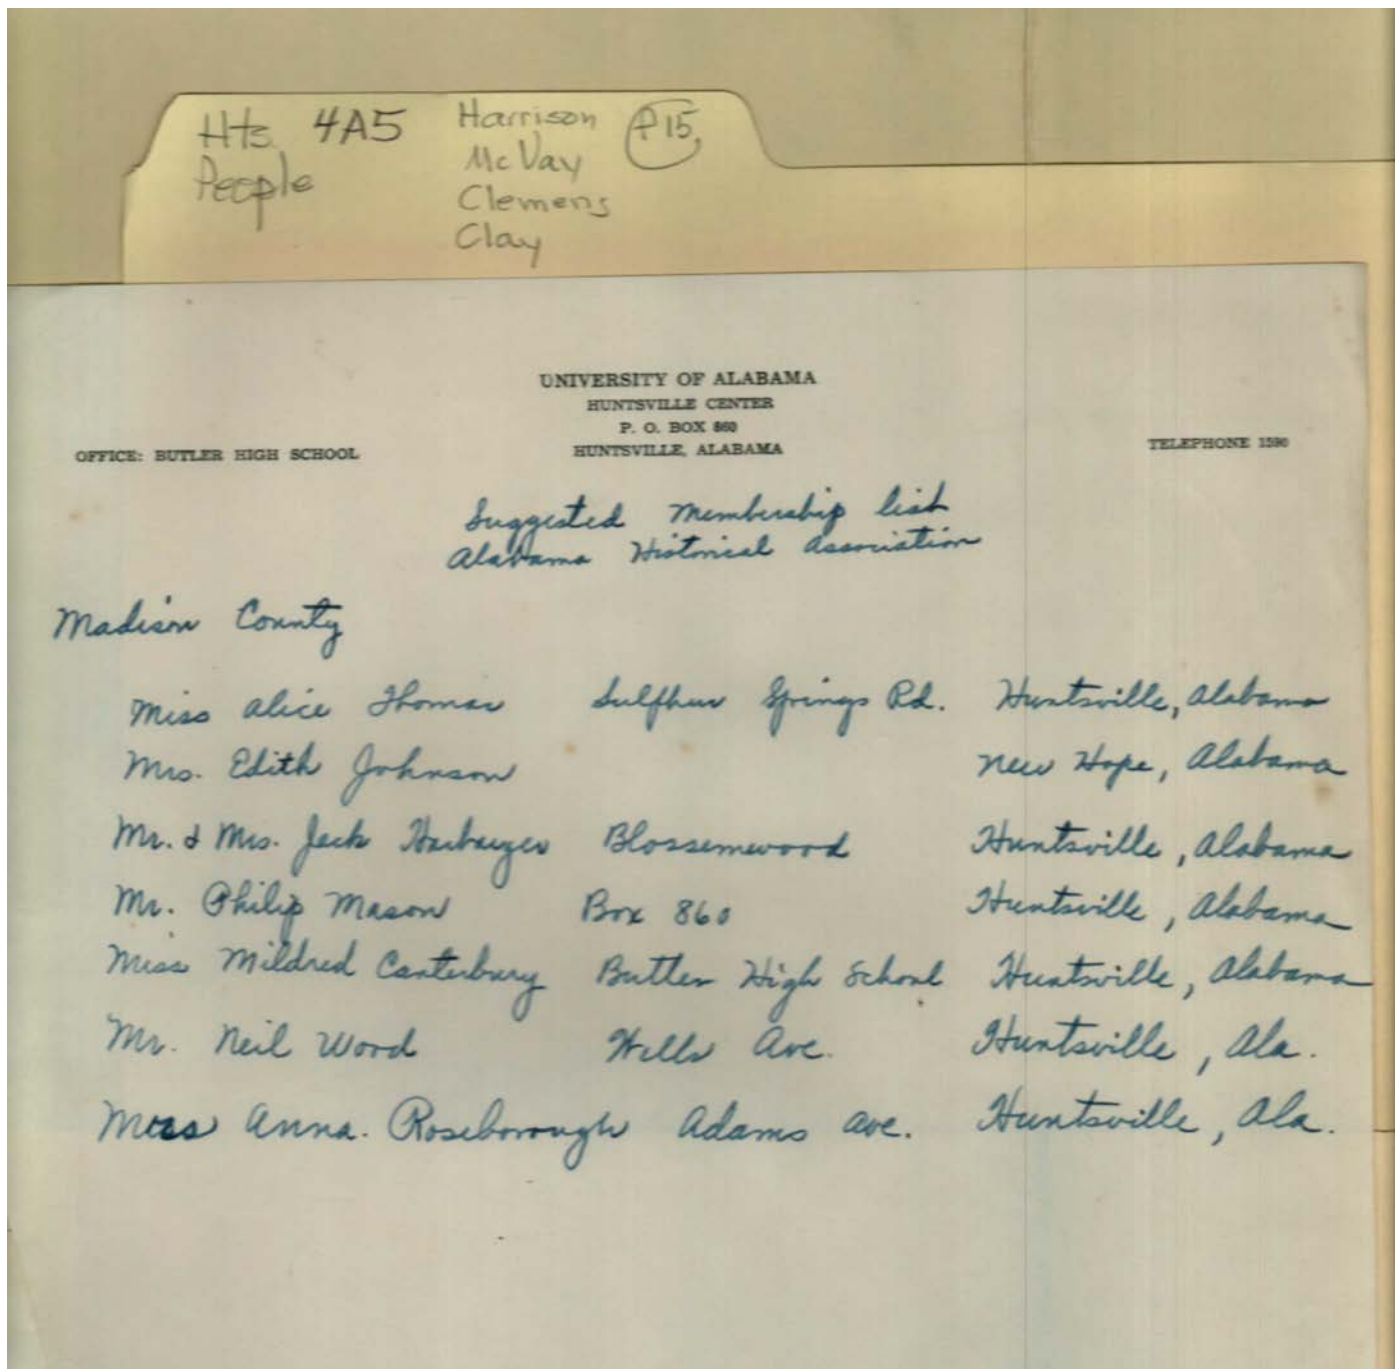 Hts. 4A5
People
Harrison
McVay
Clemens
Clay
P15
UNIVERSITY OF ALABAMA
HUNTSVILLE CENTER
P. O. BOX 860
HUNTSVILLE, ALABAMA
OFFICE: BUTLER HIGH SCHOOL
TELEPHONE 1590
Suggested Membership list
Alabama Historical Association
Madison County
Miss Alice Thomas Sulfhur Springs Rd. Huntsville, Alabama
Mrs. Edith Johnson New Hope, Alabama
Mr. & Mrs. Jack Blossemwood Huntsville, Alabama
Mr. Philip Mason Box 860 Huntsville, Alabama
Miss Mildred Canterbury Butler High School Huntsville, Alabama
Mr. Neil Wood Wells Ave. Huntsville, Ala.
Miss Anna. Roseborough Adams Ave. Huntsville, Ala.